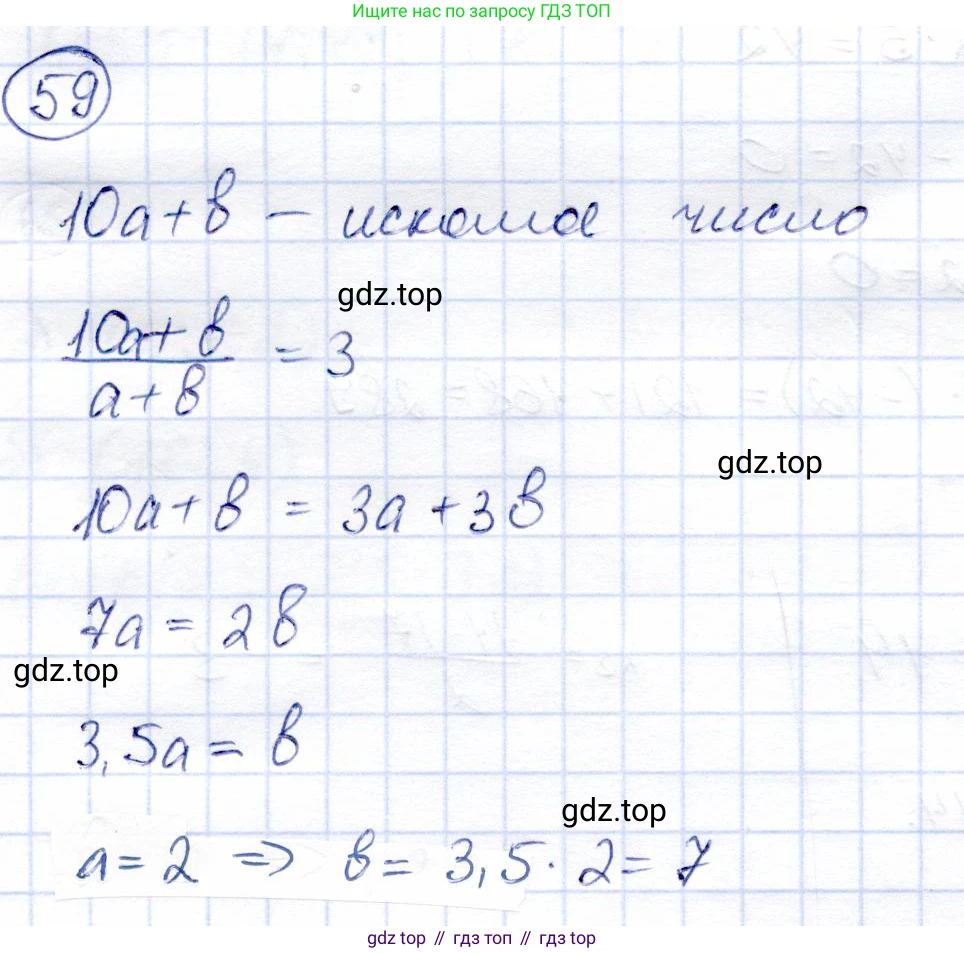 Ищите нас по запросу ГДЗ ТОП
59
10a+b – искомое число
gdz.top
10a+b
= 3
a+b
gdz.top
10a+b = 3a+3b
7a = 2b
gdz.top
3,5a = b
gdz.top
a=2 => b= 3,5·2=7
gdz top // гдз топ // гдз top